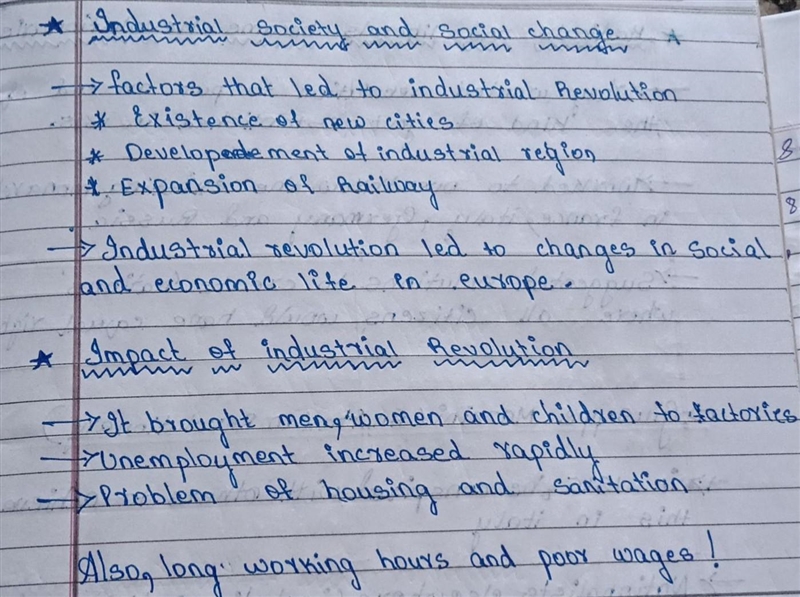 ★ Industrial society and social change ★
→ factors that led to industrial Revolution
* Existence of new cities
* Developement of industrial region
* Expansion of Railway
→ Industrial revolution led to changes in social
and economic life in europe.
★ Impact of industrial Revolution
→ It brought men, women and children to factories
→ Unemployment increased rapidly
→ Problem of housing and sanitation
Also, long working hours and poor wages!
8
8